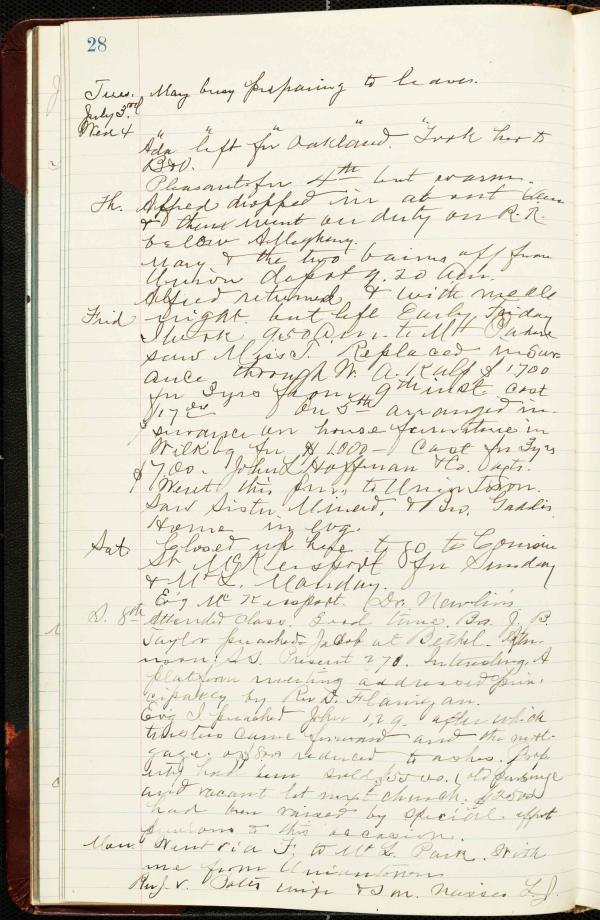 28
Tues. May busy preparing to leave.
July 3rd
Wed 4
Ada left for Oakland. Took her to
B&O.
Pleasant for 4th but warm.
Th. Alfred dropped in at out
& then went on duty on R. R.
below Allegheny.
Mary & the two bairns off from
Union depot 9.20 am.
Alfred returned & with meals
Frid night but left Early Friday
I took 9.50 A.m. to Mt
saw Miss T. Replaced insur-
ance through W. A. Kalp $1700
for 3 yrs from 9th inst cost
$17 On 5th arranged in-
surance on house furniture in
Wilkbg for $1,000 – Cost for 3 yrs
$7.00. John Hoffman & Co. agts.
Went this from to Uniontown.
Saw Sister & Bro. Gaddis
Home in Evg.
Sat Closed up here to go to Cousin
St. McKeesport for Sunday
& Mt L. Monday.
Evg McKeesport. (Dr. Newlin's
S. 8th Attended class. Good time. Bro. J. B.
Taylor preached Jacob at Bethel. After-
noon S.S. Present 270. Interesting. A
platform meeting addressed prin-
cipally by Rev D. Flanigan.
Evg I preached John 1,29, after which
trustees came forward and the mort-
gage of reduced to ashes. Prop-
erty had been sold (old parsonage
and vacant lot next church. $2500
had been raised by special effort
to this occasion.
Mon. Went via F. to Mt L. Park. With
me from Uniontown
Rev J. V. wife & son. Misses L J.